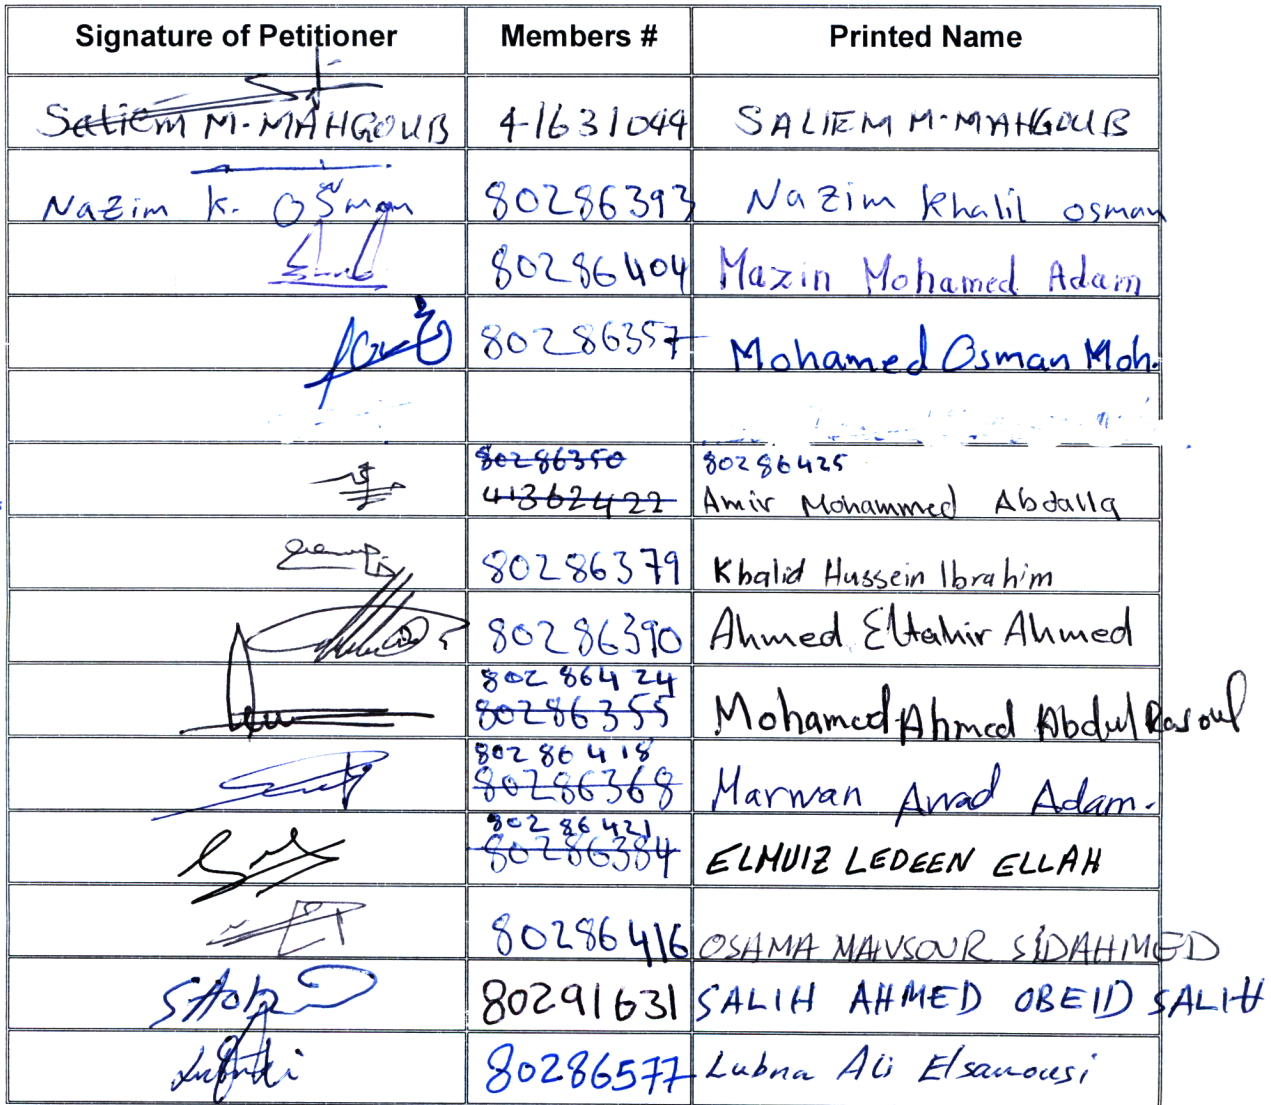 Signature of Petitioner Members # Printed Name
Saliem M-MAHGOUB 41631044 SALIEM M-MAHGOUB
Nazim k. Osman 80286393 Nazim Khalil osman
80286404 Mazin Mohamed Adam
80286357 Mohamed Osman Moh.
80286350 80286425
41362422 Amir Mohammed Abdalla
80286379 Khalid Hussein Ibrahim
80286390 Ahmed Eltahir Ahmed
80286424
80286355 Mohamed Ahmed Abdul Rasoul
80286418
80286368 Marwan Awad Adam.
80286421
80286384 ELMUIZ LEDEEN ELLAH
80286416 OSAMA MANSOUR SIDAHMED
80291631 SALIH AHMED OBEID SALIH
80286577 Lubna Ali Elsanousi